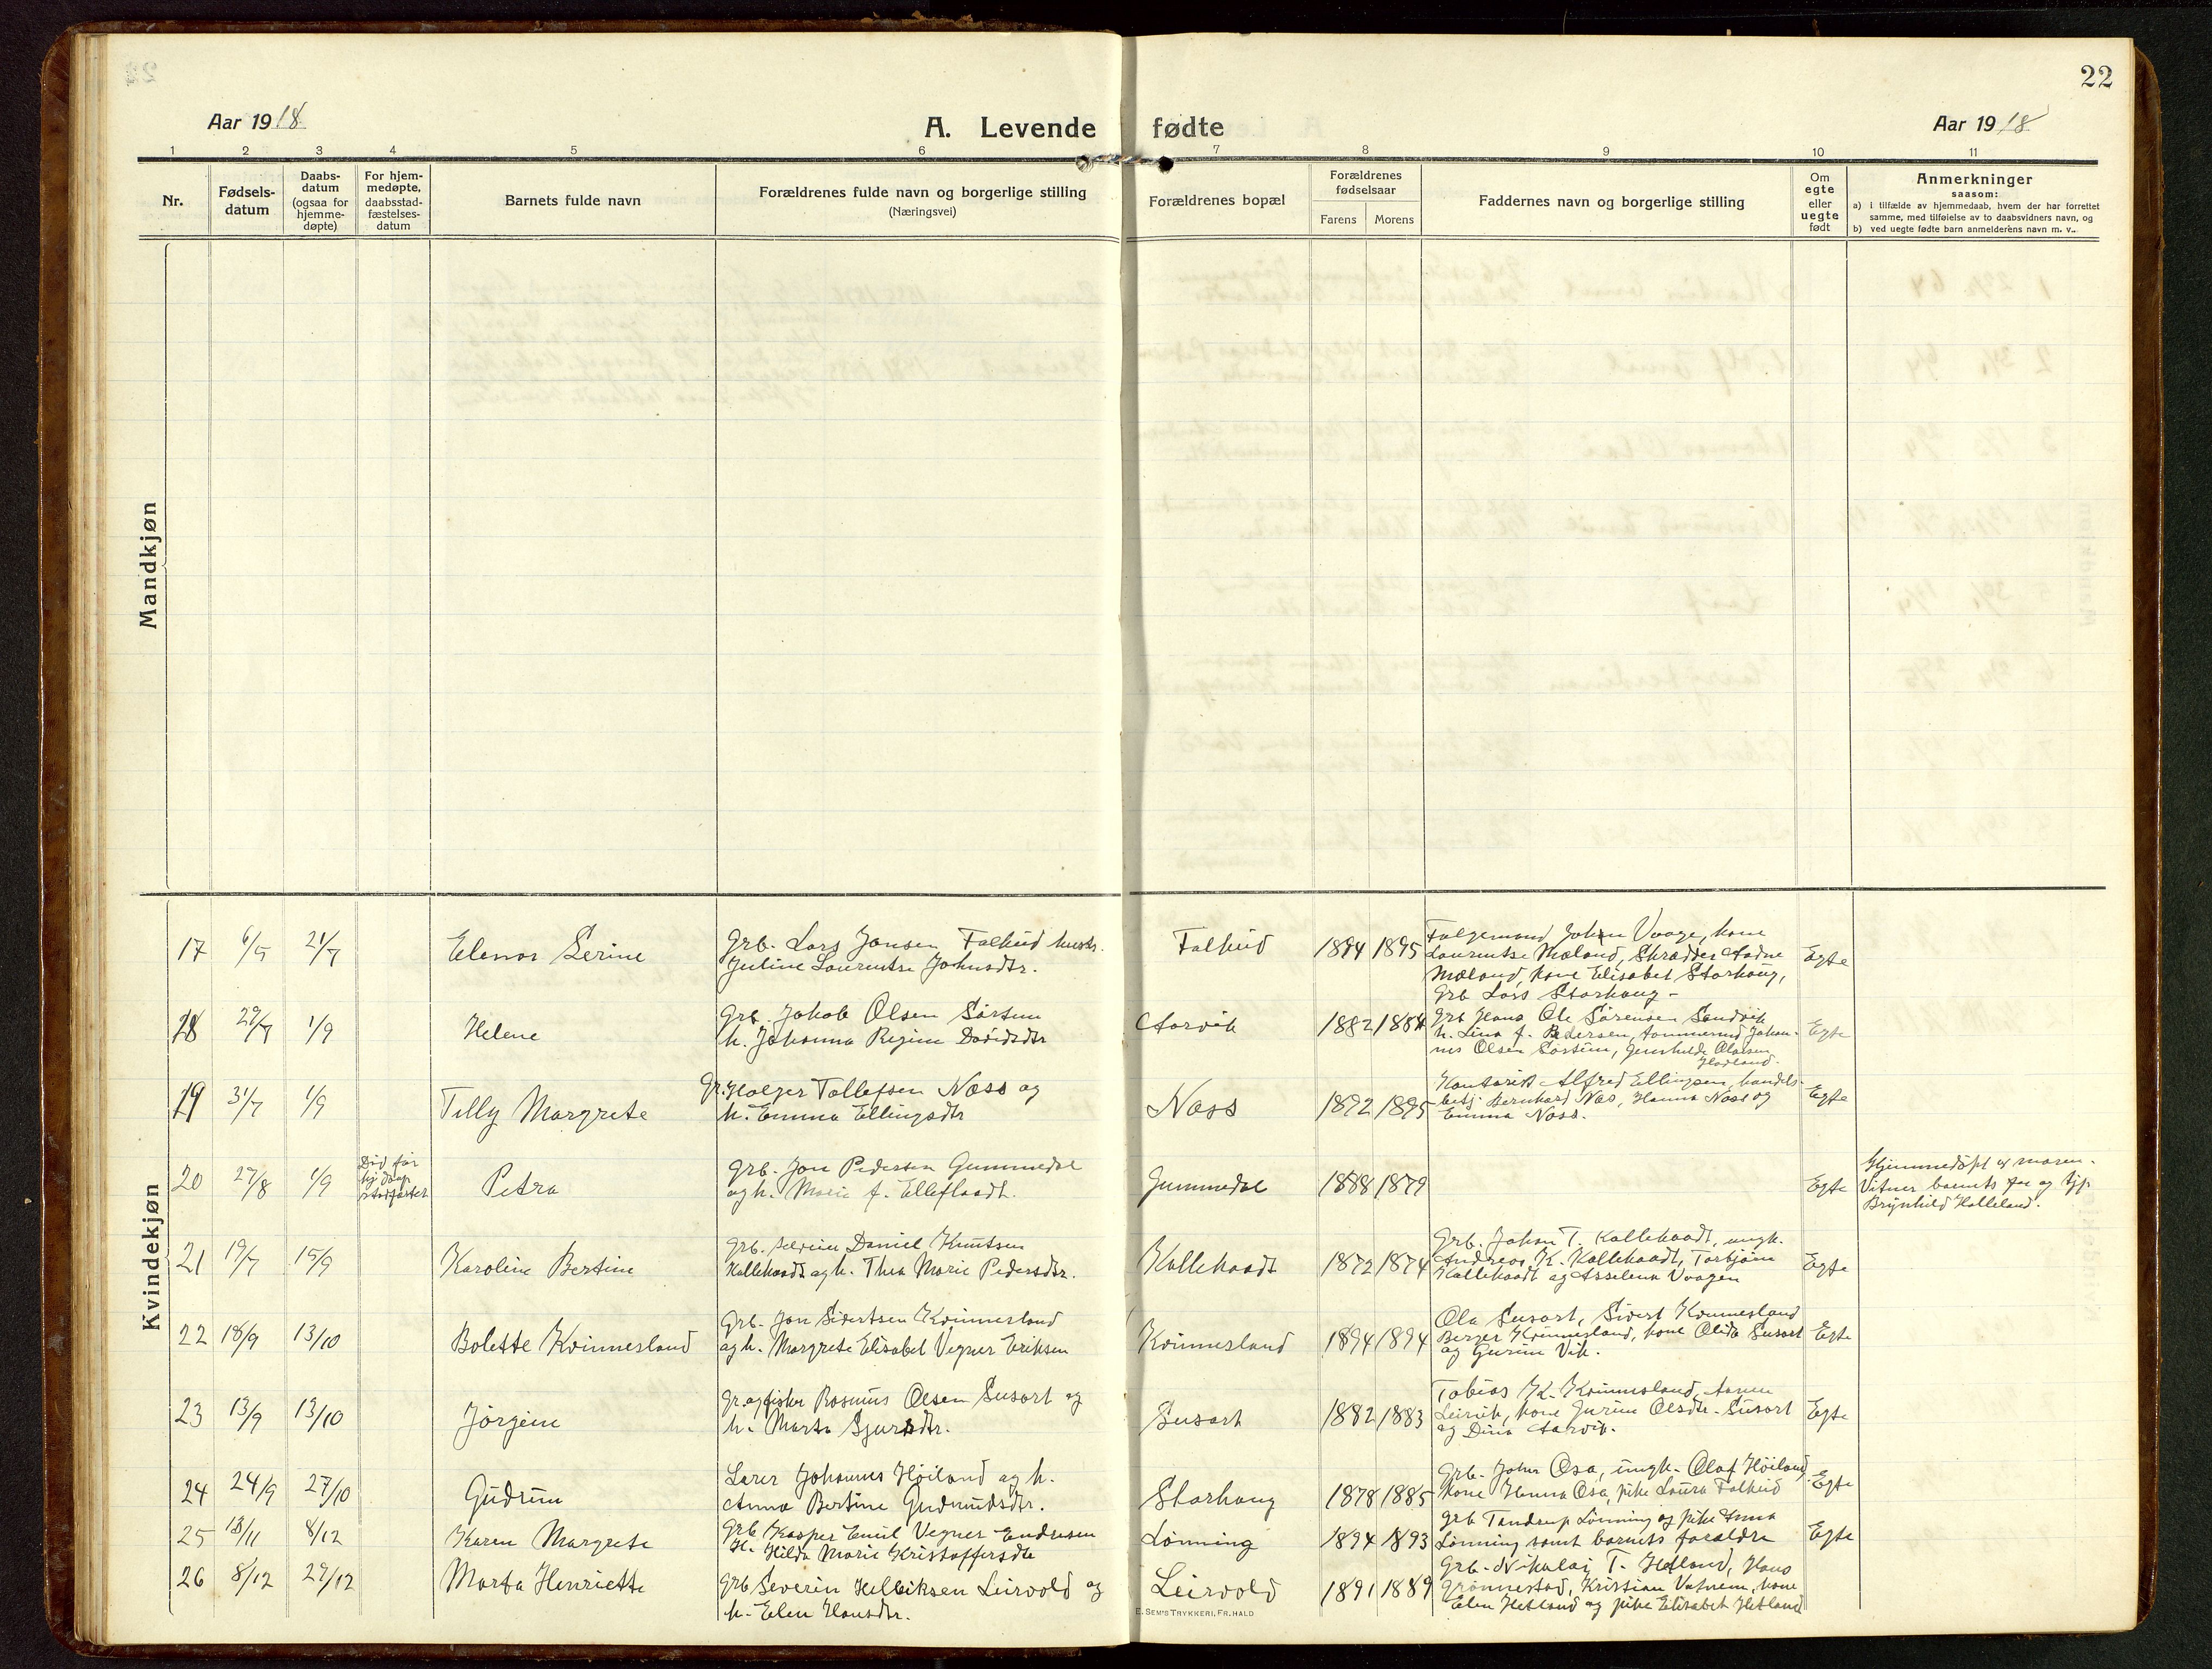 22
Aar 1918
A. Levende fødte
Aar 1918
1 2 3 4 5 6 7 8 9 10 11
Nr.
Fødsels-
datum
Daabs-
datum
(ogsaa for
hjemme-
døpte)
For hjem-
medøpte,
daabsstad-
fæstelses-
datum
Barnets fulde navn
Forældrenes fulde navn og borgerlige stilling
(Næringsvei)
Forældrenes bopæl
Forældrenes
fødselsaar
Farens Morens
Faddernes navn og borgerlige stilling
Om
egte
eller
uegte
født
Anmerkninger
saasom:
a) i tilfælde av hjemmedaab, hvem der har forrettet
samme, med tilføielse av to daabsvidners navn, og
b) ved uegte fødte barn anmelderens navn m. v..
Mandkjøn
Kvindekjøn
17 6/5 21/7 Elenor Serine
Grb. Lars Jansen Falkeid hustr.
Juline Laurentse Johnsdtr.
Falkeid 1894 1895
Johan Vaage, kone
Laurentse Mæland, Skrædder Aadne
Mæland, kone Elisabet Storhaug,
Grb Lars Storhaug -
Egte
18 29/7 1/9 Helene
Grb. Jakob Olsen Sørtun
h. Johanna Regine Davidsdtr
Aarvik 1882 1884
Grb Hans Ole Sørensen Sandvik
h. Lina f. Pedersen, tømmermd Johan-
nes Olsen Sørtun, Gunhilde Olausen
Egte
19 31/7 1/9 Tilly Margrete
Gr. Holger Tollefsen Næss og
h. Emma Ellingsdtr
Næss 1892 1895
Kontorist Alfred Ellingsen, handels-
betj. Bernhard Næs, Hanna Næss og
Emma Næss.
Egte
20 27/8 1/9
Død før
hj.døap.
stadfæstet
Petra
Grb. Jon Pedersen Gummedal
og h. Marie f. Elleflaadt.
Gummedal 1888 1879
Egte
Hjemmedøpt av moren.
Vitner barnets far og tjp.
Brynhild Halleland.
21 19/7 15/9 Karoline Bertine
Grb. Severin Daniel Knutsen
Kallekodt og h. Thea Marie Pedersdtr.
Kallekodt 1872 1874
Grb. Johan T. Kallekodt, ungk.
Andreas K. Kallekodt, Torbjørn
Kallekodt og Asselena Vaagen
Egte
22 18/9 13/10 Bolette Kvinnesland
Grb. Jon Sivertsen Kvinnesland
og h. Margrete Elisabet Vegner Eriksen
Kvinnesland 1894 1894
Ola Susort, Sivert Kvinnesland
Berger Kvinnesland, kone Olida Susort
og Gurine Vik.
Egte
23 13/9 13/10 Jørgine
Gr. og fisker Rasmus Olsen Susort og
h. Marta Sjursdtr.
Susort 1882 1883
Tobias K. Kvinnesland,
Leirvik, kone Gurine Olsdtr. Susort
og Dina Aarvik.
Egte
24 24/9 27/10 Gudrun
Lærer Johannes Høiland og h.
Anna Bertine Gudmundsdtr.
Storhaug 1878 1885
Grb. Johan Osa, ungk. Olaf Høiland,
kone Hanna Osa, pike Laura Falkeid
Egte
25 18/11 8/12 Karen Margrete
Grb Kasper Emil Vegner Endresen
H. Hilda Marie Kristoffersdtr
Lønning 1894 1893
Grb Tandrup Lønning og pike Anna
Lønning samt barnets forældre
Egte
26 8/12 29/12 Marta Henriette
Grb Severin Helliksen Leirvold og
h. Elen Hansdtr.
Leirvold 1891 1889
Grb. Nikolai T. Hetland, Hans
Grønnestad, Kristian Vatnem, kone
Elen Hetland og pike Elisabet Hetland
E. SEM'S TRYKKERI, FR.HALD